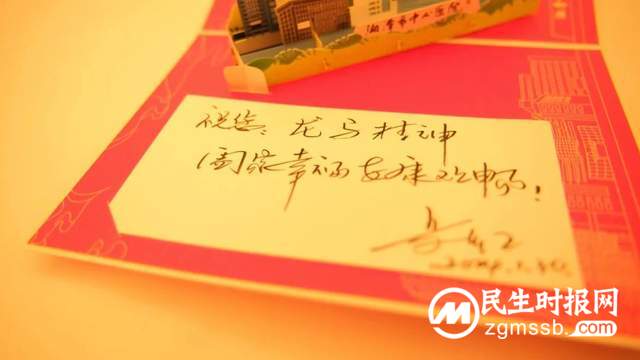 湘潭市中心医院
祝您：龙马精神
阖家幸福安康欢畅！
民生时报网
zgmssb.com